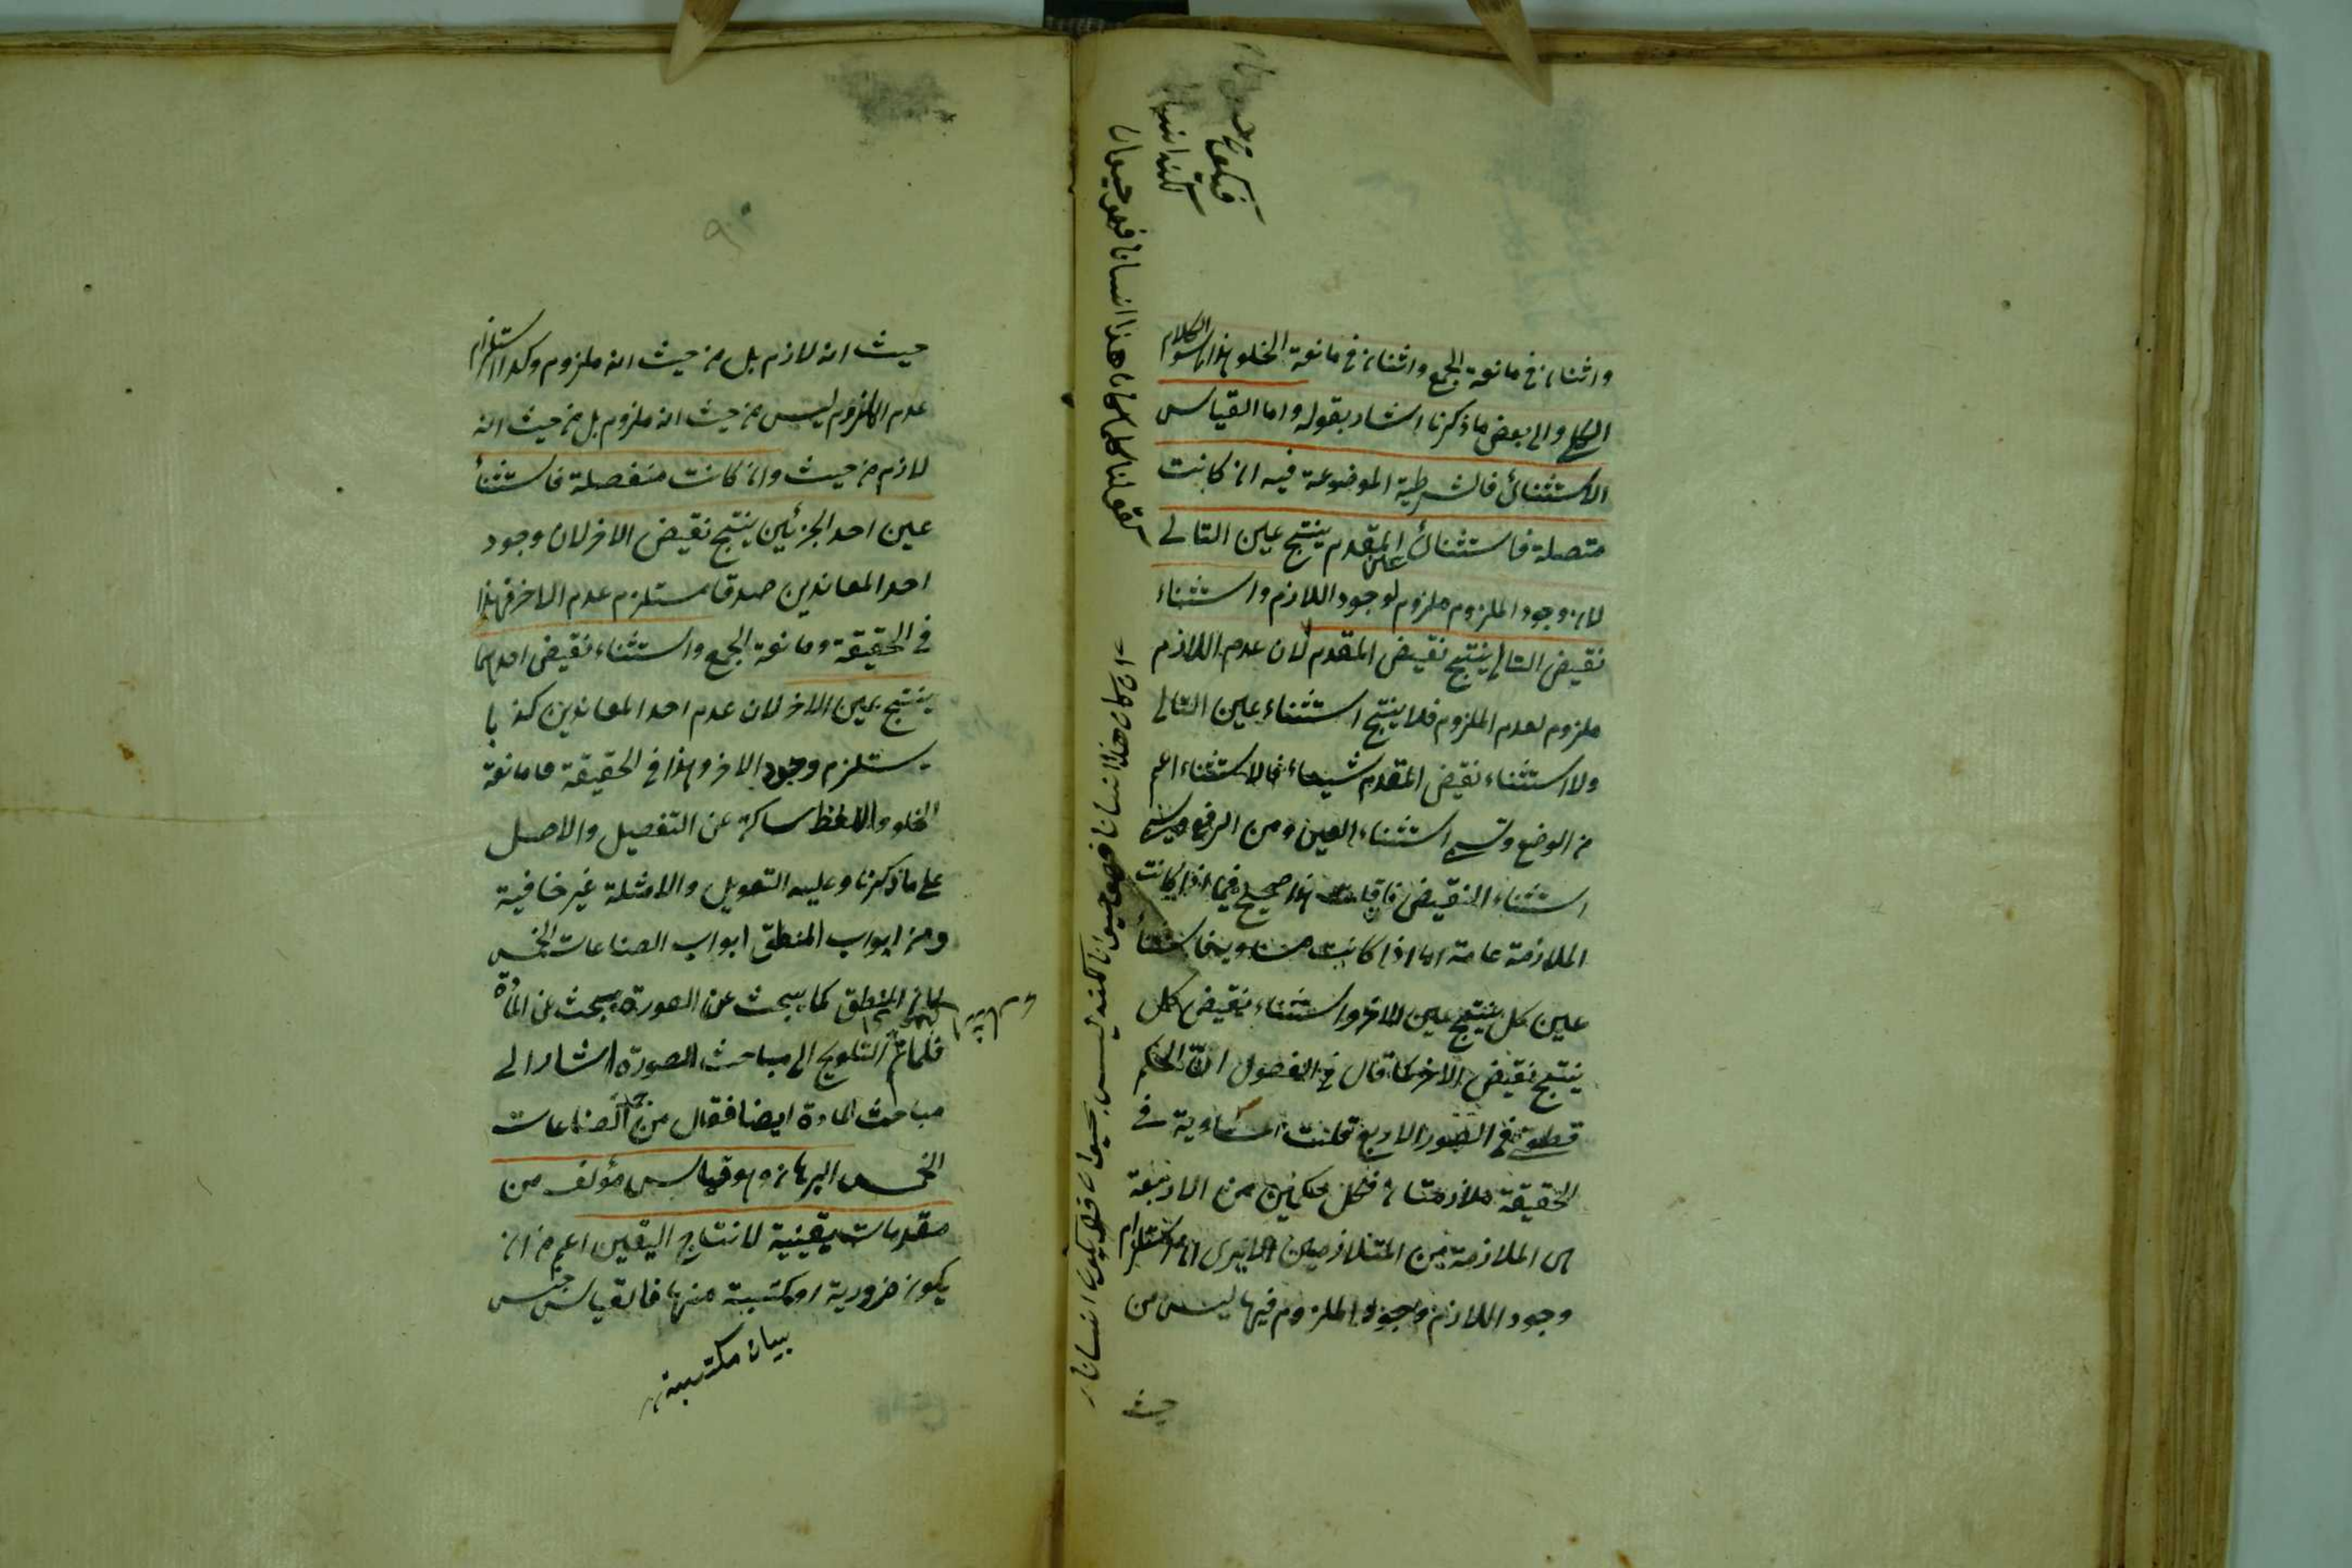 واثنان في مانعة الجمع واثنان في مانعة الخلو هذا هو الكلام
الكلي والى بعض ما ذكرنا اشار بقوله واما القياس
الاستثنائي فالشرطية الموضوعة فيه ان كانت
متصلة فاستثناء عين المقدم ينتج عين التالي
لان وجود الملزوم ملزوم لوجود اللازم واستثناء
نقيض التالي ينتج نقيض المقدم لان عدم اللازم
ملزوم لعدم الملزوم فلا ينتج استثناء عين التالي
ولا استثناء نقيض المقدم شيئا فالاستثناء اعم
من الوضع ويسمى استثناء العين ومن الرفع ويسمى
استثناء النقيض فان قلت هذا صحيح فيما اذا كانت
الملازمة عامة اما اذا كانت مساوية فاستثناء
عين كل ينتج عين الاخر واستثناء نقيض كل
ينتج نقيض الاخر كما قال في الفصول ان الحكم
في الصور الاربع قلنت المساوية في
الحقيقة ملازمتان فكل حكمين من الاربعة
الملازمة من المتلازمين الا يرى ان استلزام
وجود اللازم وجود الملزوم فيها ليس من
حيث
كقولنا كلما كان هذا انسانا فهو حيوان
لكنه انسان
فيكون حيوانا
ان كان هذا انسانا فهو حيوان لكنه ليس بحيوان فلا يكون انسانا
حيث انه لازم بل من حيث انه ملزوم وكذا استلزام
عدم الملزوم ليس من حيث انه ملزوم بل من حيث انه
لازم من حيث وان كانت منفصلة فاستثناء
عين احد الجزئين ينتج نقيض الاخر لان وجود
احد المعاندين صدقا مستلزم عدم الاخر فهذا
في الحقيقة ومانعة الجمع واستثناء نقيض احدهما
ينتج عين الاخر لان عدم احد المعاندين كذبا
يستلزم وجود الاخر وهذا في الحقيقة ومانعة
الخلو واللفظ ساكت عن التفصيل والاصل
على ما ذكرنا وعليه التعويل والامثلة غير خافية
ومن ابواب المنطق ابواب الصناعات الخمس
لان المنطق كما يبحث عن الصورة يبحث عن المادة
فلما تم التلويح الى مباحث الصورة اشار الى
مباحث المادة ايضا فقال من جملة الصناعات
الخمس البرهان وهو قياس مؤلف من
مقدمات يقينية لانتاج اليقين اعم من ان
يكون ضرورية او مكتسبة منها فالقياس جنس
بيان مكتسبة